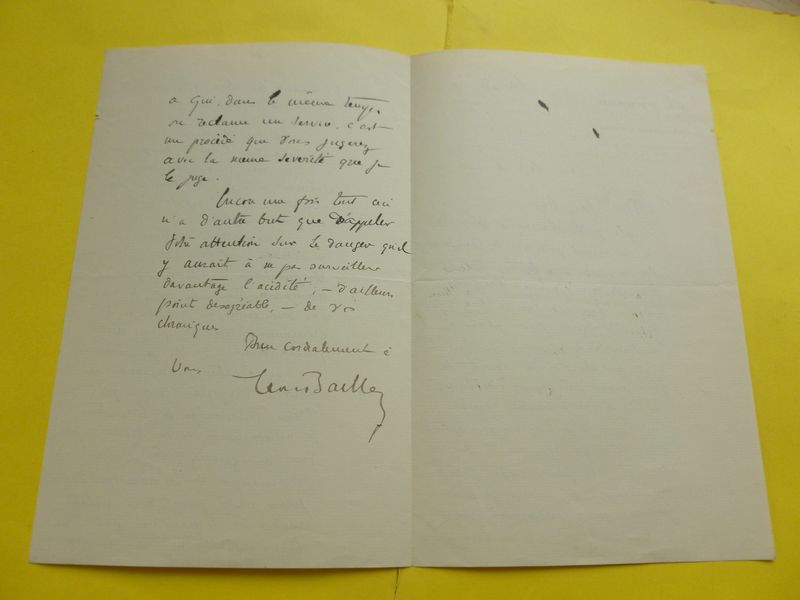 a qui, dans le même temps,
on réclame un service. c'est
un procédé que vous jugerez
avec la même sévérité que je
le juge.
Encore une fois tout ceci
n'a d'autre but que d'appeler
votre attention sur le danger qu'il
y aurait à ne pas surveiller
davantage l'acidité, – d'ailleurs
point désagréable, – de vos
chroniques
Bien cordialement à
Vous